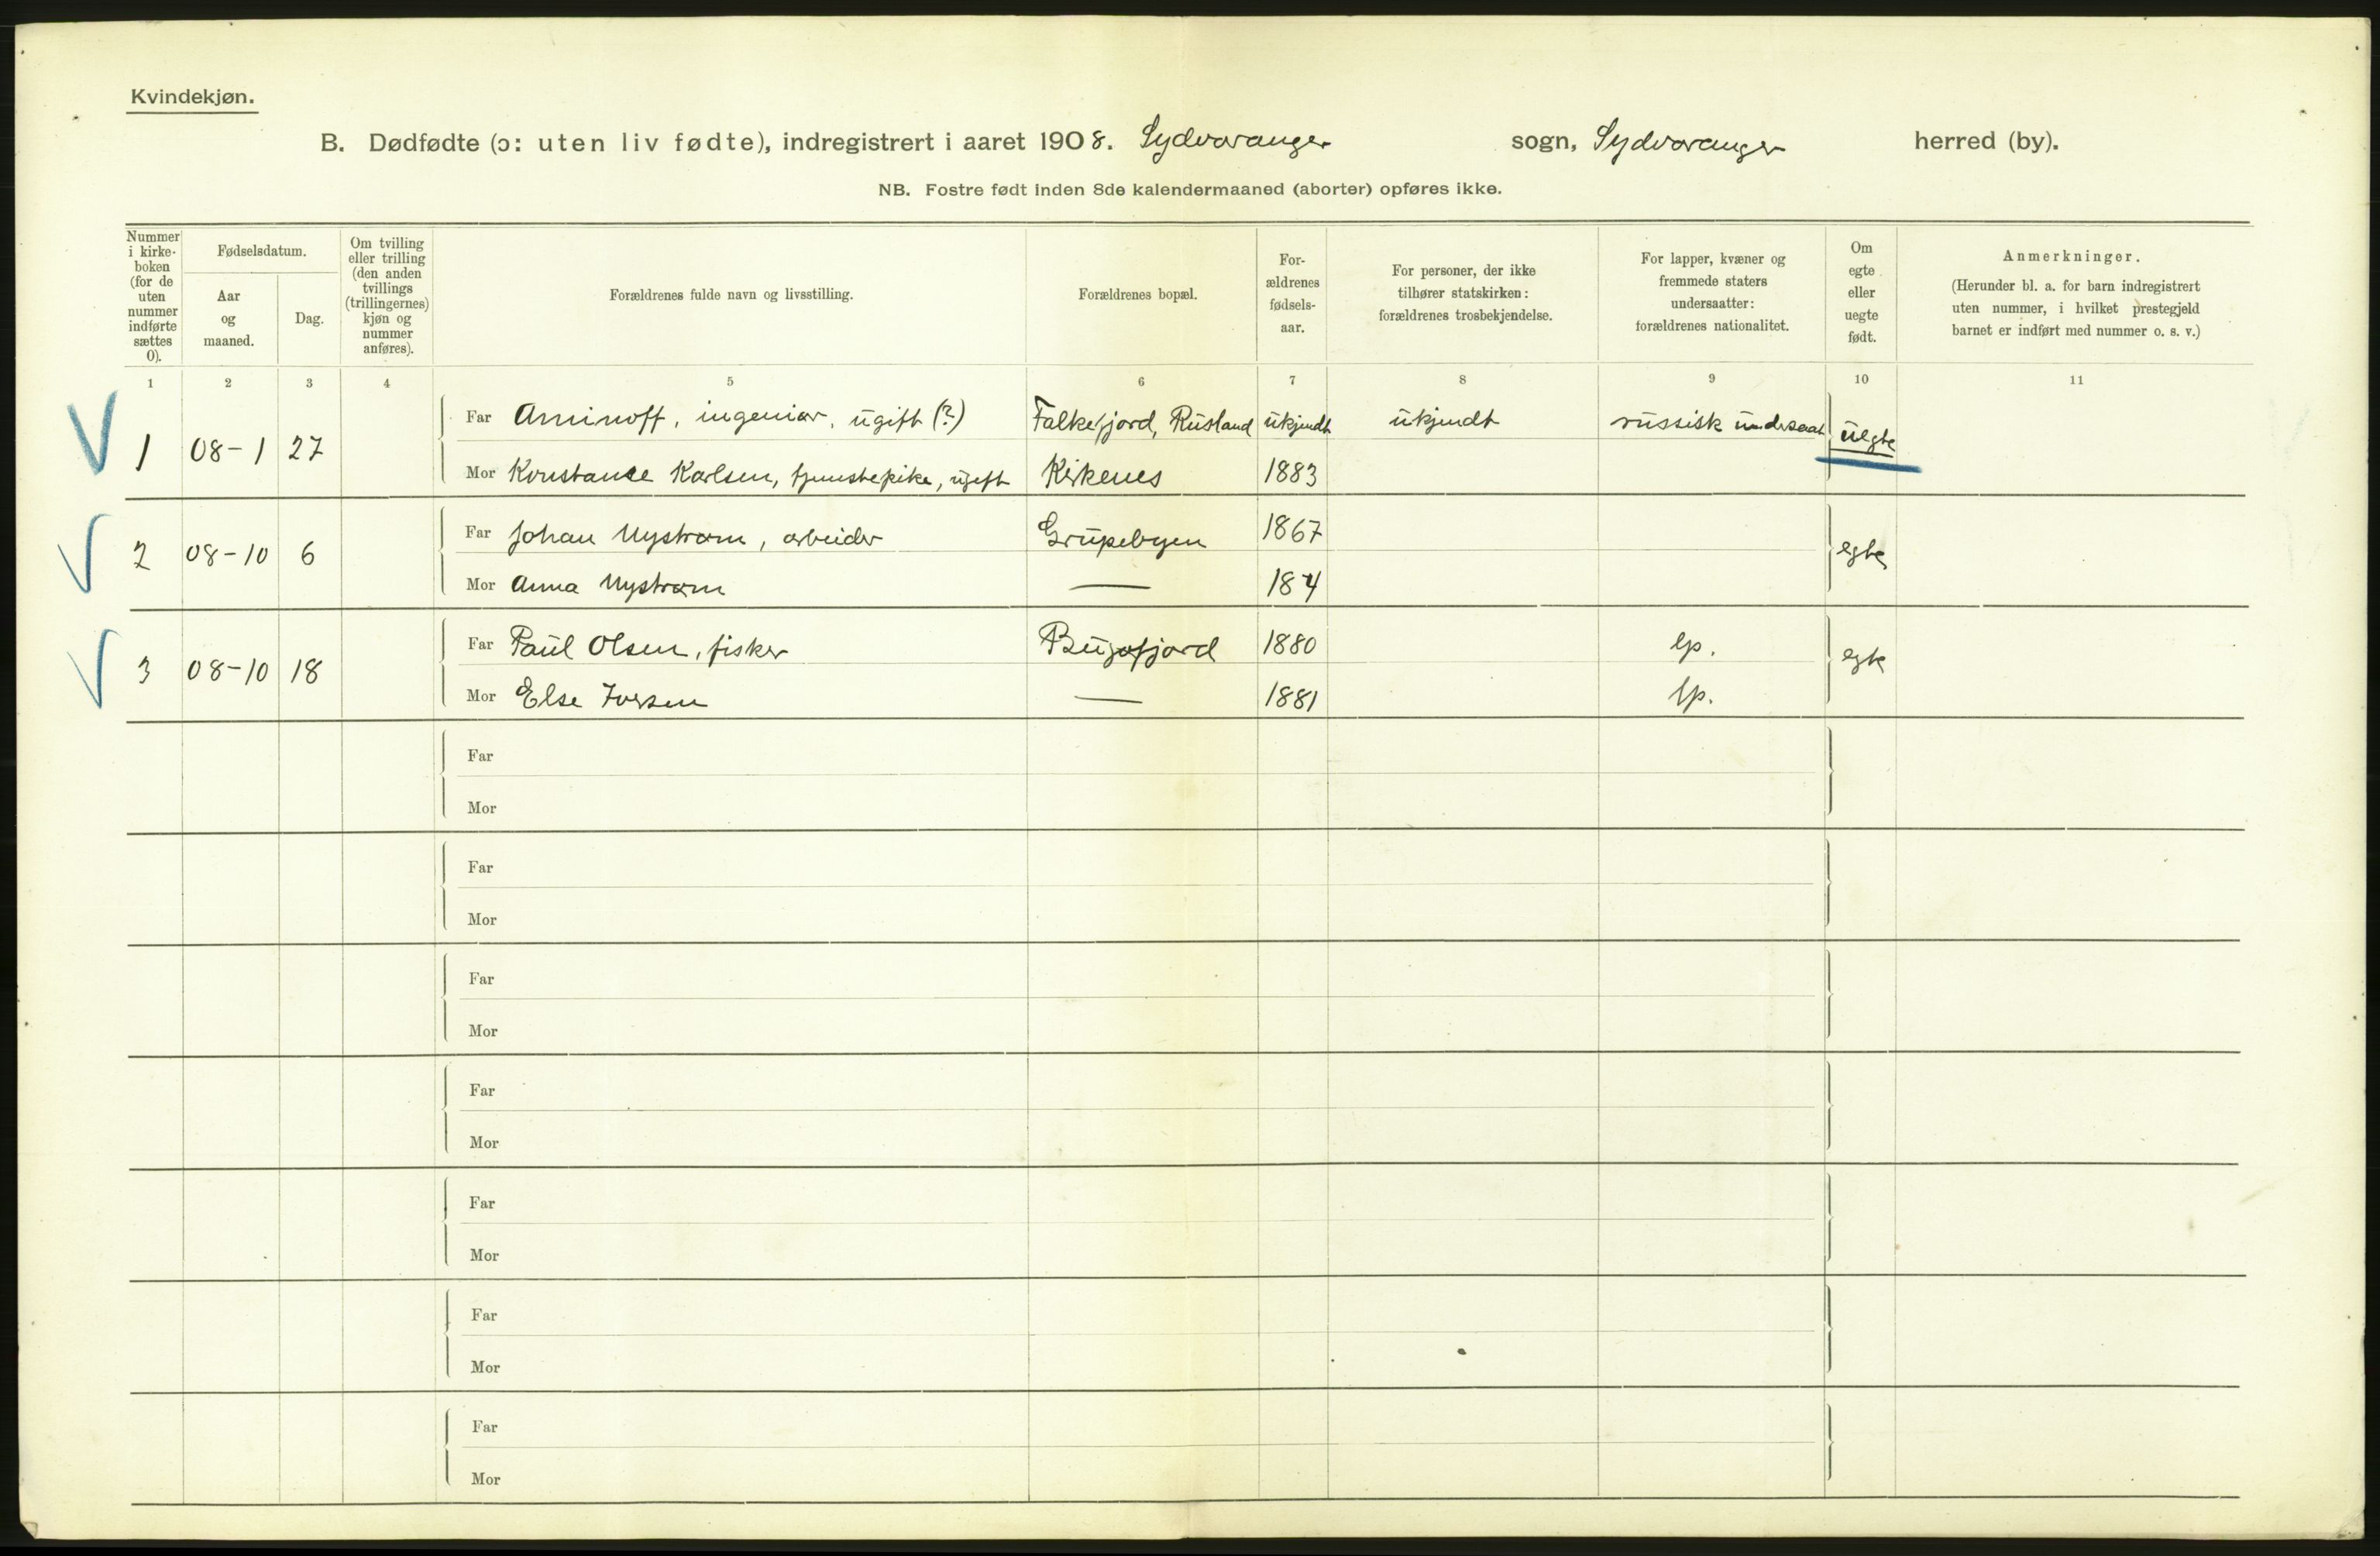 Kvindekjøn.
B. Dødfødte (ɔ: uten liv fødte), indregistrert i aaret 1908. Sydvaranger sogn, Sydvaranger herred (by).
NB. Fostre født inden 8de kalendermaaned (aborter) opføres ikke.
Nummer i kirke- boken (for de uten nummer indførte sættes 0).
Fødselsdatum.
Aar og maaned.
Dag.
Om tvilling eller trilling (den anden tvillings (trillingernes) kjøn og nummer anføres).
Forældrenes fulde navn og livsstilling.
Forældrenes bopæl.
For- ældrenes fødsels- aar.
For personer, der ikke tilhører statskirken: forældrenes trosbekjendelse.
For lapper, kvæner og fremmede staters undersaatter: forældrenes nationalitet.
Om egte eller uegte født.
Anmerkninger.
(Herunder bl. a. for barn indregistrert uten nummer, i hvilket prestegjeld barnet er indført med nummer o. s. v.)
1 2 3 4 5 6 7 8 9 10 11
1 08-1 27 Far Aminoff, ingeniør, ugift (?) Falkefjord, Rusland ukjendt ukjendt russisk undersaat uegte
Mor Konstanse Karlsen, tjenestepike, ugift Kirkenes 1883
2 08-10 6 Far Johan Nystrøm, arbeider Grupebyen 1867 egte
Mor Anna Nystrøm — 
3 08-10 18 Far Paul Olsen, fisker Bugøfjord 1880 lp. egte
Mor Else Iversen — 1881 lp.
Far
Mor
Far
Mor
Far
Mor
Far
Mor
Far
Mor
Far
Mor
Far
Mor